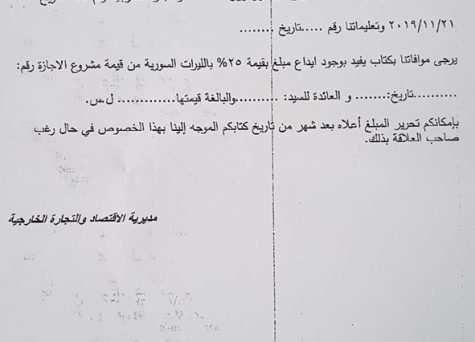 ٢٠١٩/١١/٢١ وتعليماتنا رقم .....تاريخ ........
يرجى موافاتنا بكتاب يفيد بوجود ايداع مبلغ بقيمة ٢٥% بالليرات السورية من قيمة مشروع الاجازة رقم:
..........تاريخ:....... و العائدة للسيد: ..........والبالغة قيمتها............. ل.س.
بإمكانكم تحرير المبلغ أعلاه بعد شهر من تاريخ كتابكم الموجه إلينا بهذا الخصوص في حال رغب
صاحب العلاقة بذلك.
مديرية الاقتصاد والتجارة الخارجية